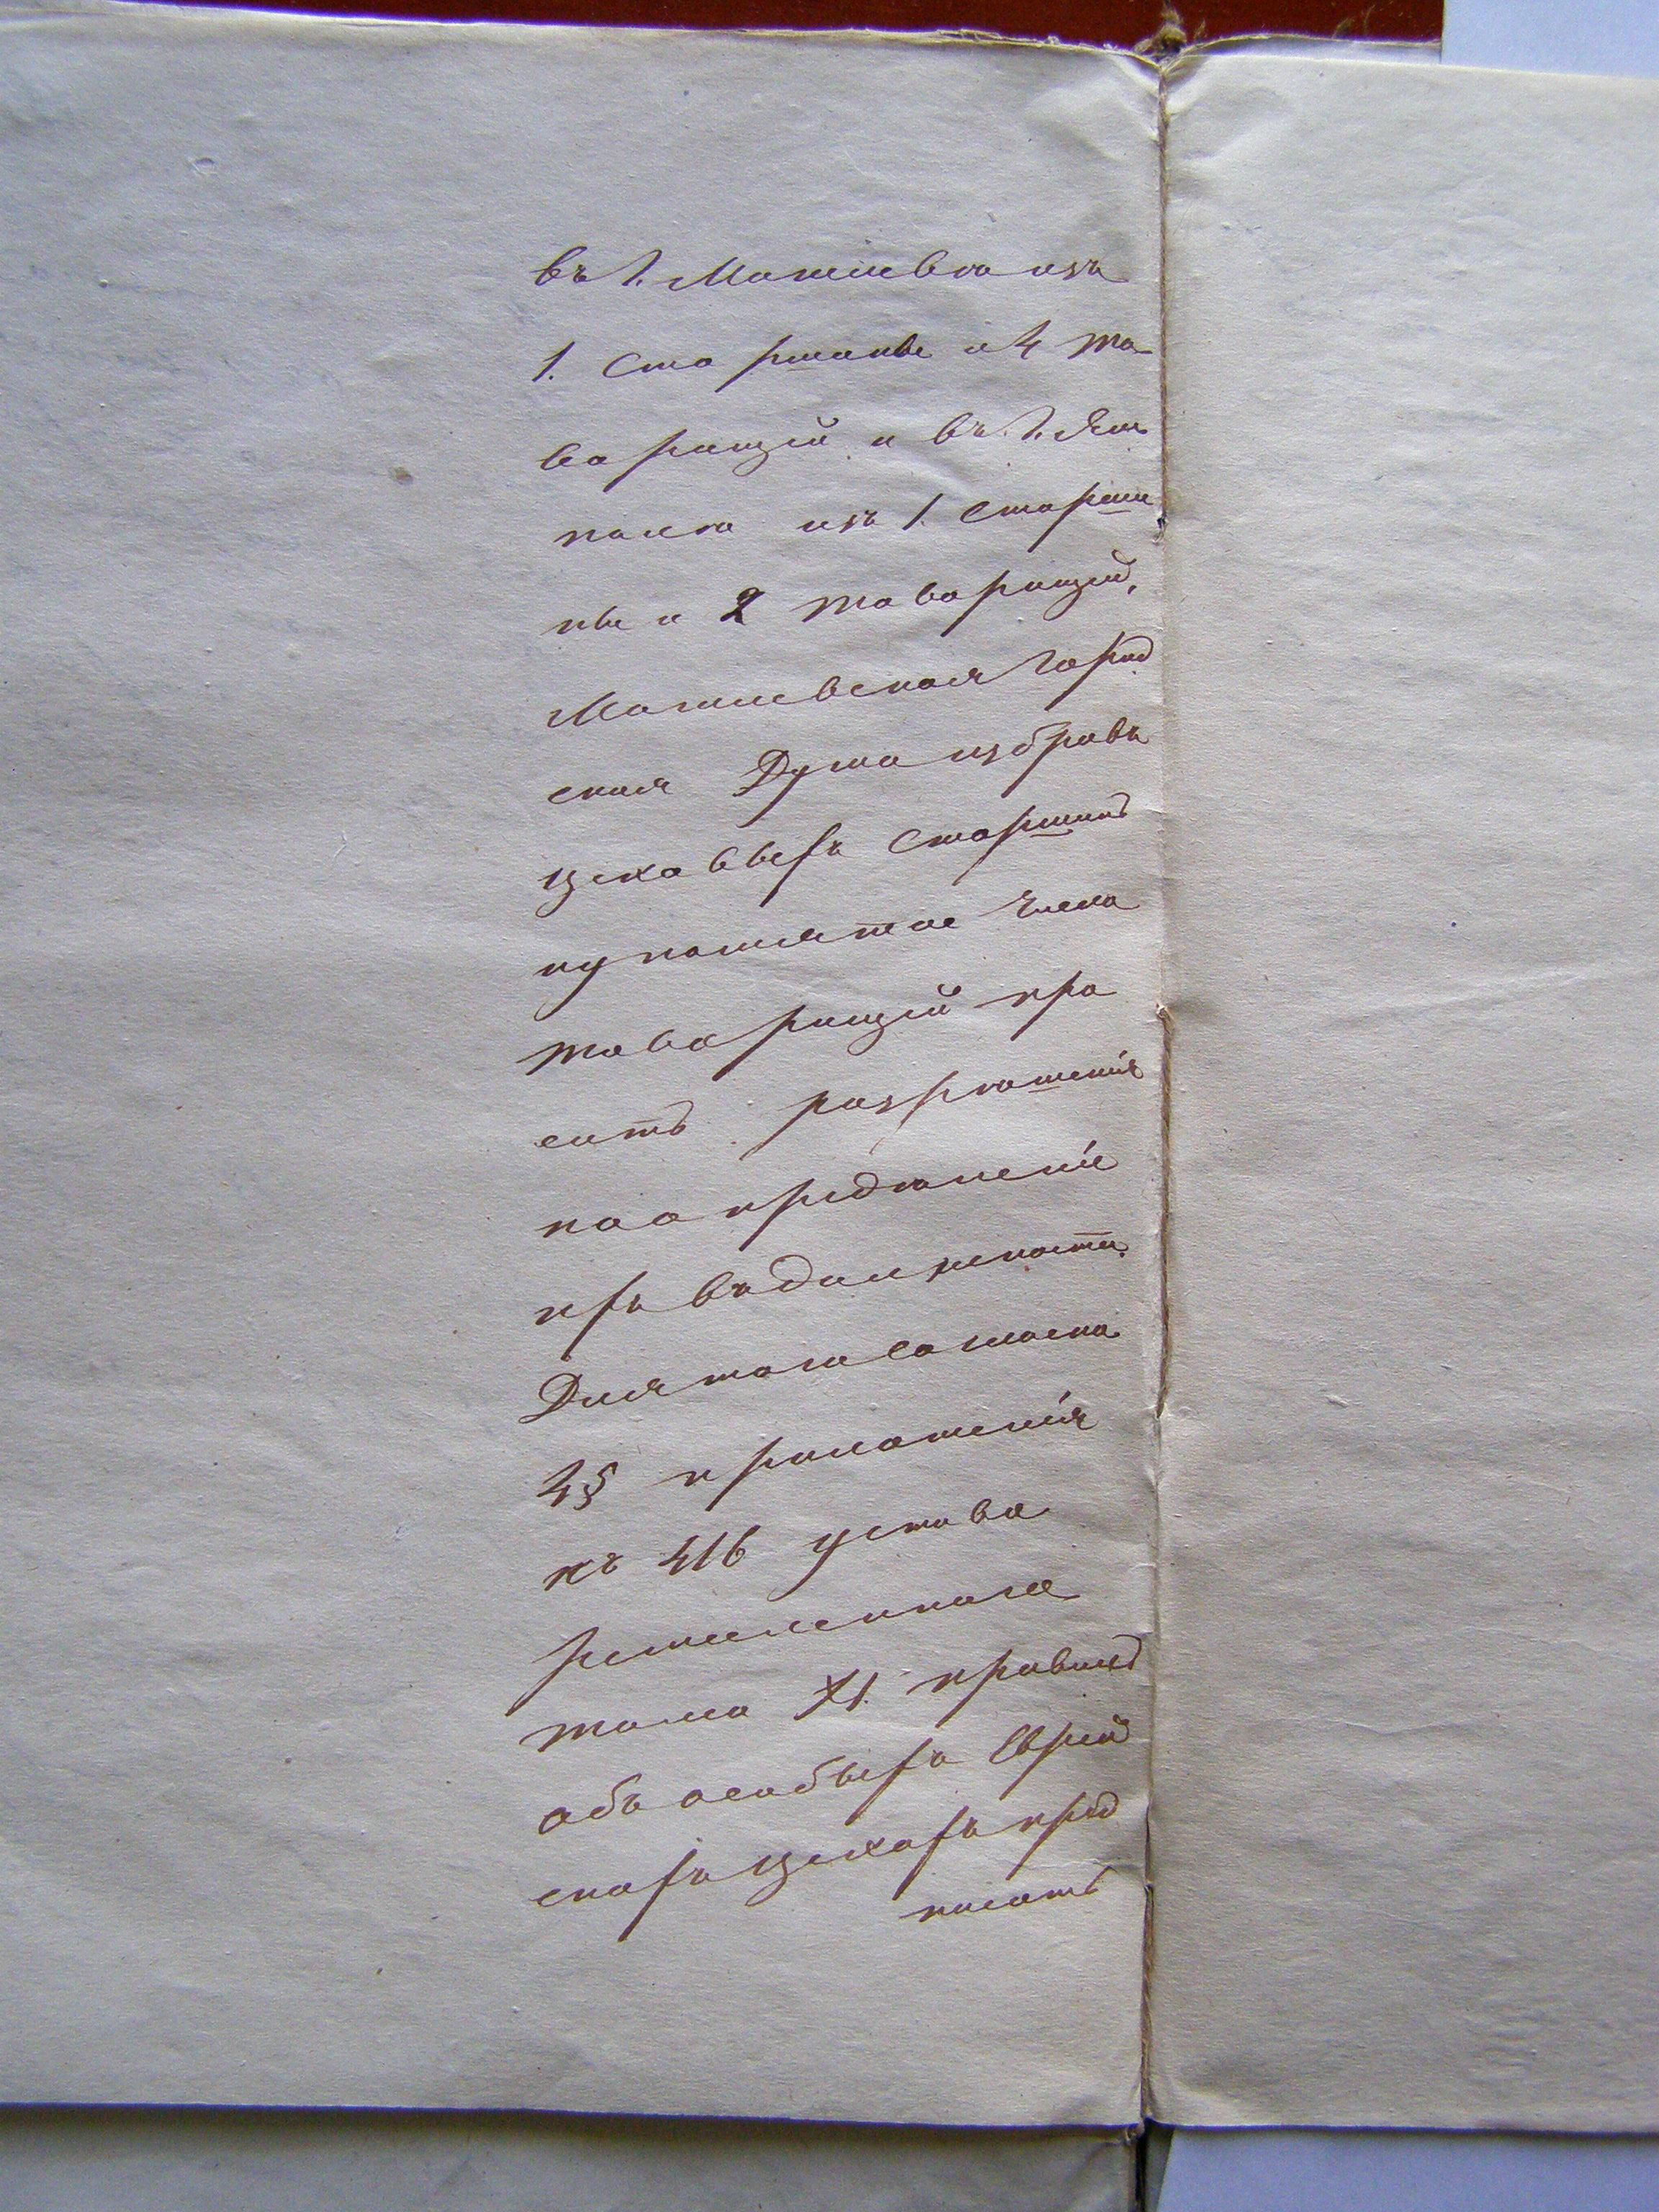 въ г. Могилевѣ изъ
1. Старшины и 4 то-
варищей и въ г. Ям-
полѣ изъ 1. Старши
ны и 2 товарищей,
Могилевская Город
ская Дума избравъ
цеховыхъ Старшинъ
и упомянутое число
товарищей про
ситъ разрѣшенія
на опредѣленіе
ихъ въ должности.
Для того согласно
4 § приложенія
къ 416 устава
ремесленнаго
тома XI. правилъ
объ особыхъ Еврей
скихъ цехахъ пред
писать